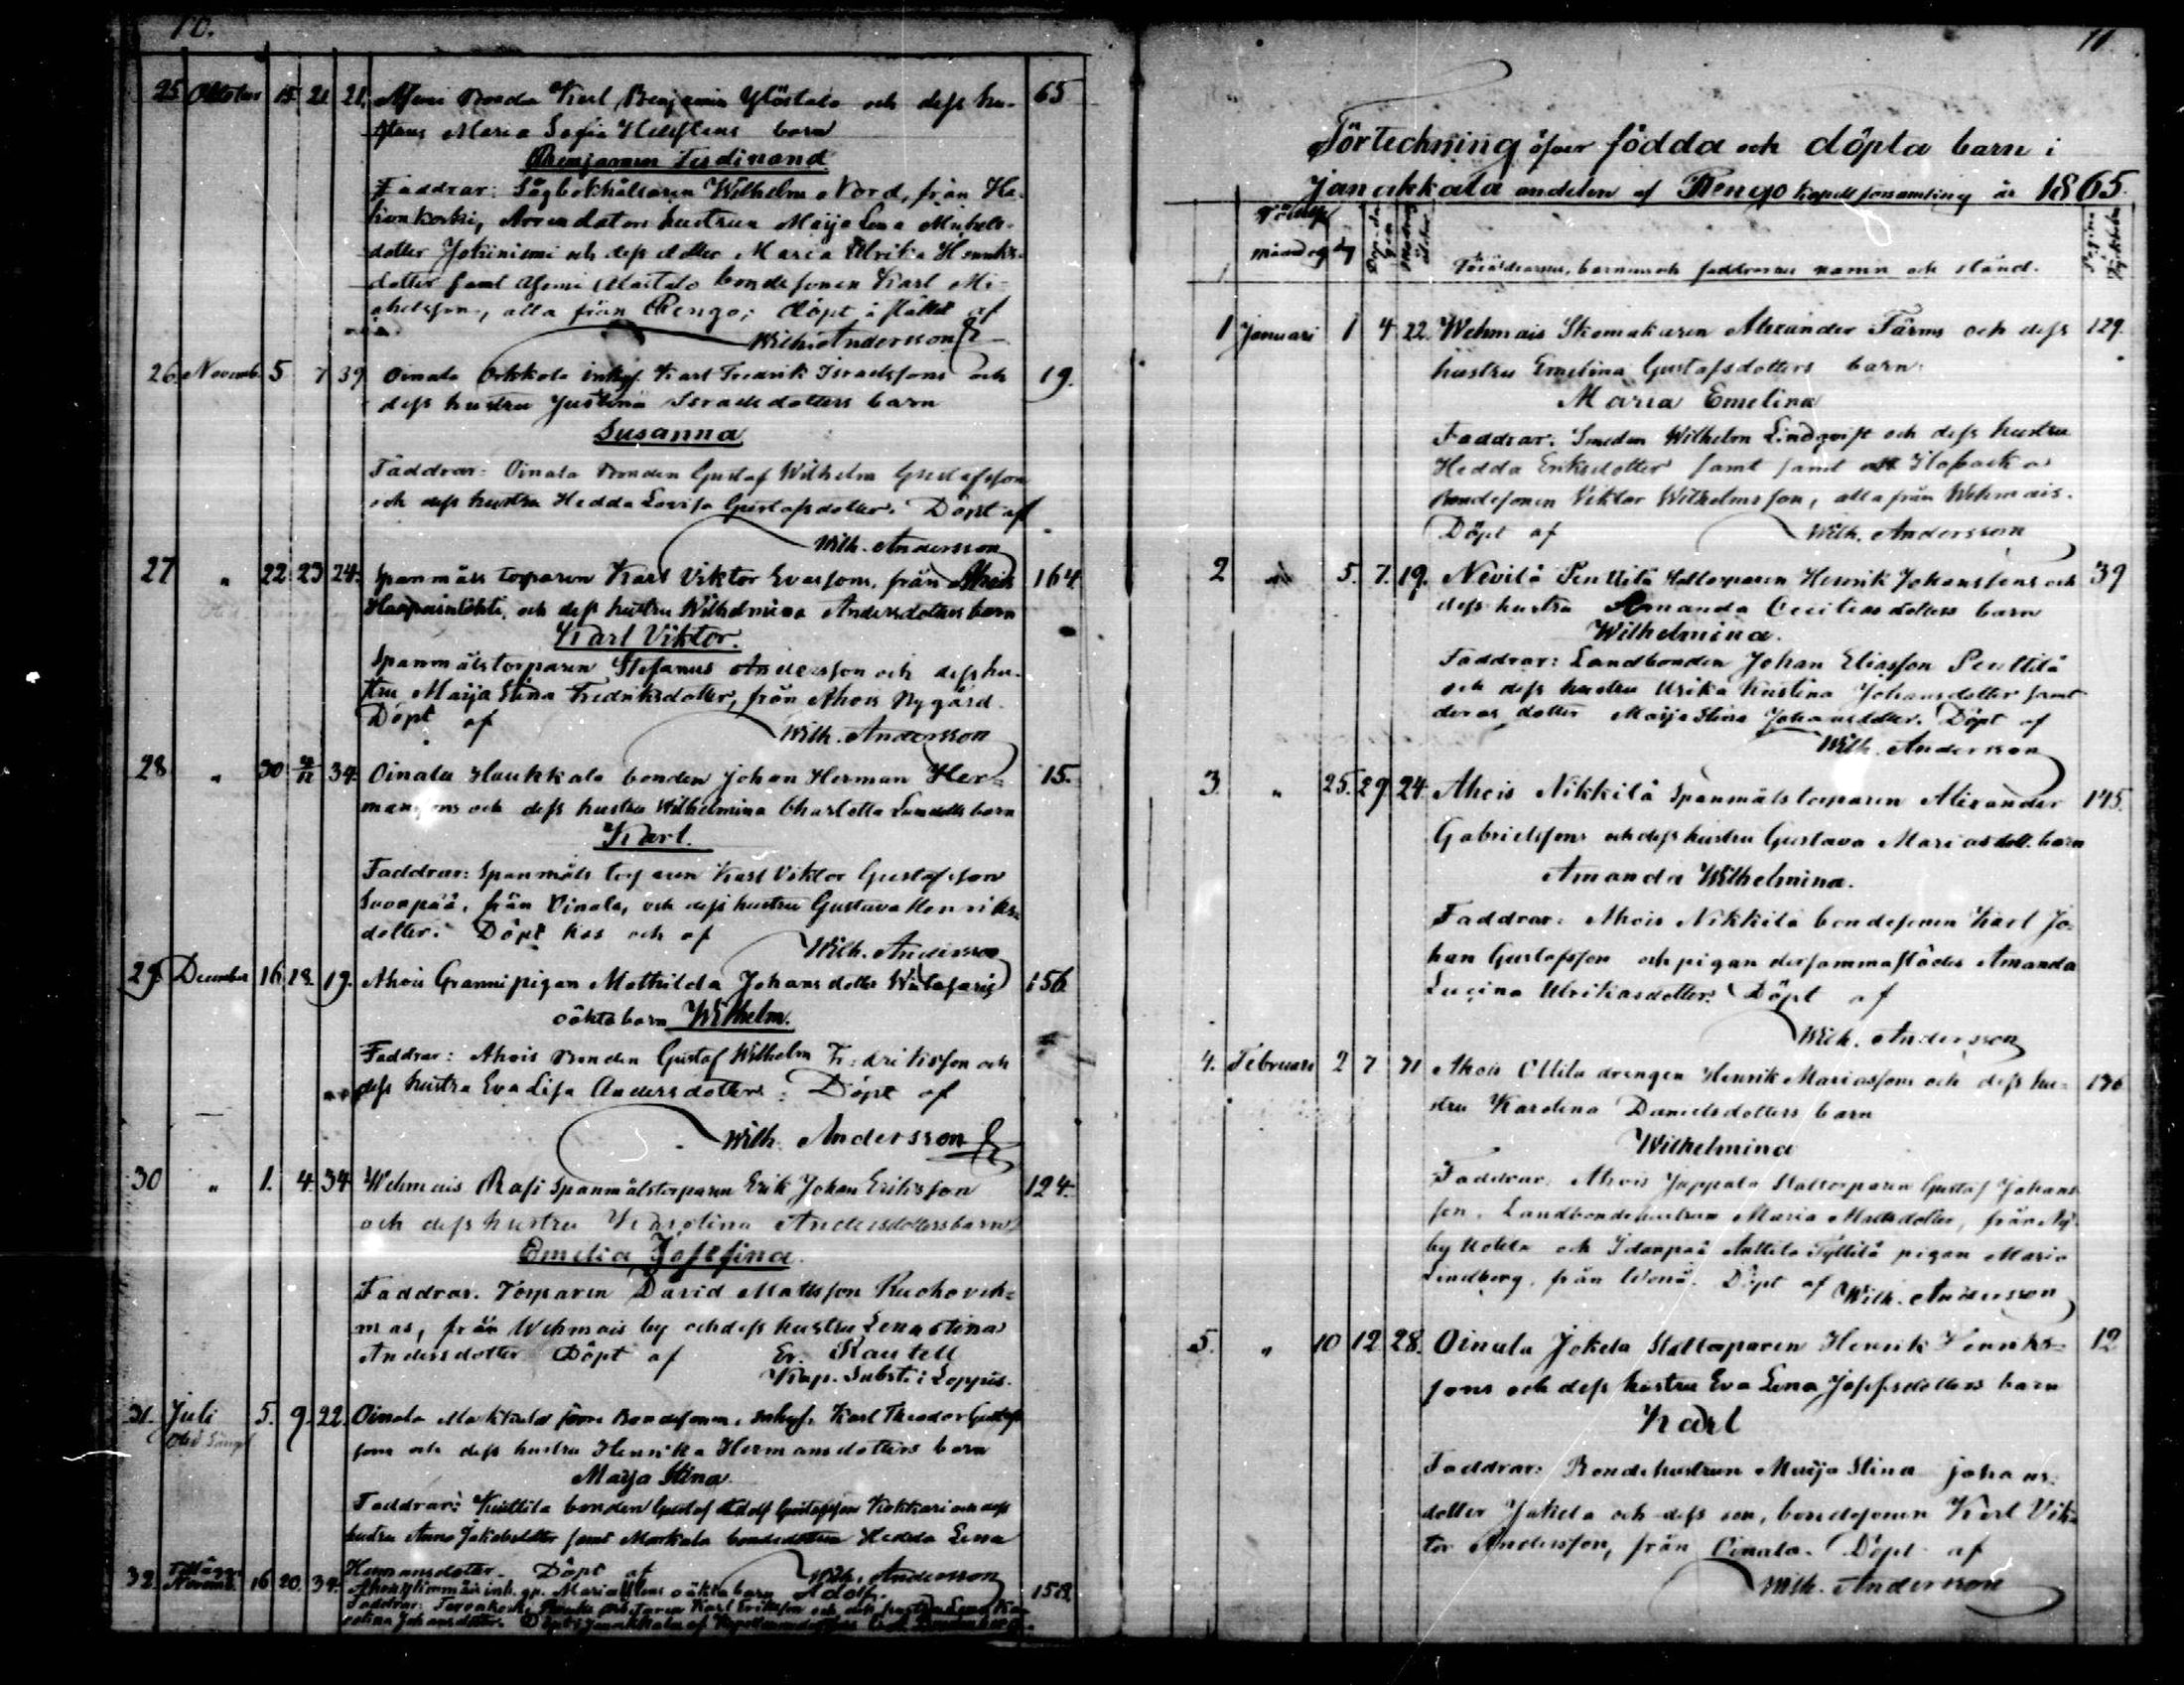 10.
25 October 15 21 21. Bonden Karl Benjamin Ylöstalo och dess hu- 65
strus Maria Sofia barn
Benjamin Ferdinand.
Faddrar: Sågbokhållaren Wilhelm Nord, från Ha-
Arrendators hustrun Maija Lena Michels-
dotter Jokiniemi och dess dotter Maria Ulrika Henriks-
dotter samt bondesonen Karl Mi-
chelsson, alla från Rengo; döpt å stället af
Wilh. Andersson
26. Novemb. 5 7 39 Oinala Orkkola inhys. Karl Fredrik Israelssons och 19.
dess hustru Justina Israelsdotters barn
Susanna
Faddrar: Oinala Bonden Gustaf Wilhelm Gustafsson
och dess hustru Hedda Lovisa Gustafsdotter. Döpt af
Wilh. Andersson
27 " 22 23 24. Spanmåls torparen Karl Viktor Evassons, från Ahois 164
och dess hustru Wilhelmina Andersdotters barn
Karl Viktor.
Spanmålstorparen Stefanus Andersson och dess hu-
stru Maija Stina Fredriksdotter, från Ahois Nygård.
Döpt af
Wilh. Andersson
28 " 30 34. Oinala Haukkala bonden Johan Herman Her- 15.
manssons och dess hustru Wilhelmina Charlotta barn
Karl.
Faddrar: Spanmåls torparen Karl Viktor Gustafsson
Suonpää, från Oinala, och dess hustru Gustava Henriks-
dotter. Döpt hos och af
Wilh. Andersson
29. December 16 18. 19. Ahois Granni pigan Mathilda Johansdotter 156
oäkta barn Wilhelm.
Faddrar: Ahois Bonden Gustaf Wilhelm Fredriksson och
dess hustru Eva Lisa Andersdotter. Döpt af
Wilh. Andersson
30 " 1. 4. 34 Wehmais Rasi Spanmålstorparen Erik Johan Eriksson 124.
och dess hustru Karolina Andersdotters barn
Emelia Josefina.
Faddrar. Torparen David Mattsson
mas, från Wehmais by och dess hustru Lena Stina
Andersdotter Döpt af Er. Rautell
Kap. Subst. i Loppis.
31. Juli 5. 9. 22. Oinala Bondesonen, inhys. Karl Theodor Gustafs-
sons och dess hustru Henrika Hermansdotters barn
Maija Stina.
Faddrar: Kuittila bonden Gustaf Adolf Gustafsson Kokkari och dess
hustru Anna Jakobsdotter samt Markala bondedottern Hedda Lena
Hermansdotter. Döpt af
Wilh. Andersson
32. Tillägg Novemb. 16 20. 34. oäkta barn Adolf. 158.
Faddrar: Karl Eriksson och dess hustru Lena Ka-
rolina Johansdotter.
11
Förteckning öfver födda och döpta barn i
Janakkala andelen af Rengo kapell församling år 1865.
månad og dag
Föräldrarnes, barnens och faddrarnes namn och stånd.
1 Januari 1 4 22. Wehmais Skomakaren Alexander Färms och dess 129.
hustru Emelina Gustafsdotters barn:
Maria Emelina
Faddrar: Smeden Wilhelm Lindqvist och dess hustru
Hedda Eriksdotter samt samt
Bondesonen Viktor Wilhelmsson, alla från Wehmais.
Döpt af Wilh. Andersson
2 " 5. 7. 19. Nevilä Penttilä Statorparen Henrik Johanssons och 39
dess hustru Amanda Ceciliasdotters barn
Wilhelmina.
Faddrar: Landbonden Johan Eliasson Penttilä
och dess hustru Ulrika Kristina Johansdotter samt
deras dotter Maija Stina Johansdotter. Döpt af
Wilh. Andersson
3. " 25. 29 24. Ahois Nikkilä Spanmålstorparen Alexander 145.
Gabrielssons och dess hustru Gustava Mariasdott. barn
Amanda Wilhelmina.
Faddrar: Ahois Nikkilä bondesonen Karl Jo-
han Gustafsson och pigan dersammastädes Amanda
Lucina Ulrikasdotter. Döpt af
Wilh. Andersson
4. Februari 2 7 31 Ahois Ollila drengen Henrik Mariassons och dess hu- 136
stru Karolina Danielsdotters barn
Wilhelmina
Faddrar: Ahois Jappala Statorparen Gustaf Johans-
son, Landbondehustrun Maria Mattsdotter, från Ny-
by och Idänpää Anttila pigan Maria
Lindberg, från Döpt af Wilh. Andersson
5. " 10 12 28. Oinala Jokela Statorparen Henrik Henriks- 12
sons och dess hustru Eva Lena Josefsdotters barn
Karl
Faddrar: Bondehustrun Maija Stina Johans-
dotter Jokela och dess son, bondesonen Karl Vik-
tor Andersson, från Oinala. Döpt af
Wilh. Andersson